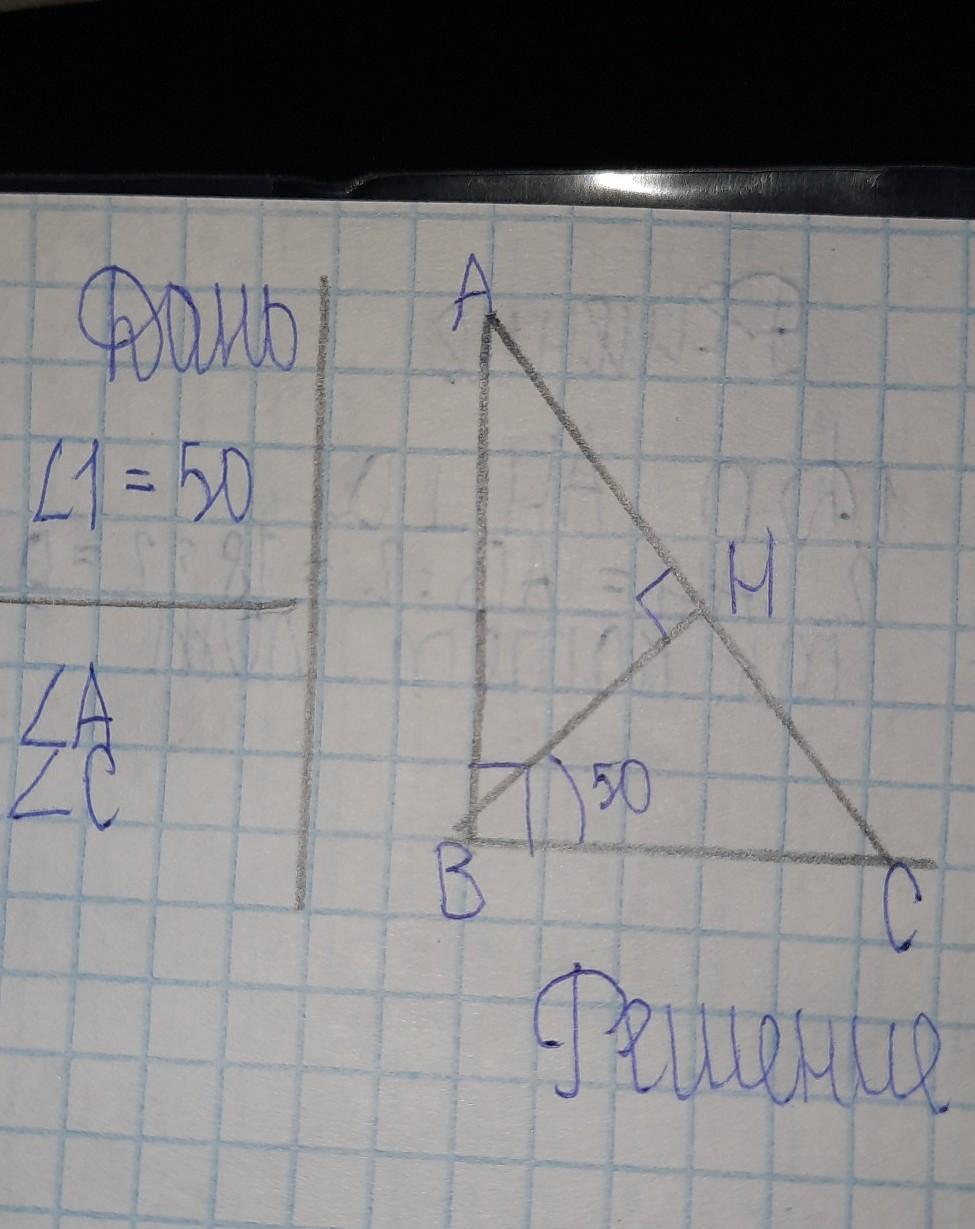 Дано
∠1 = 50
∠A
∠C
A
H
50
B
C
Решение